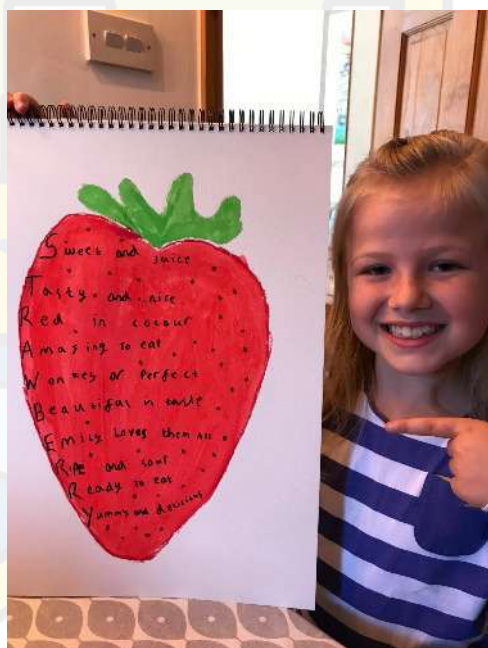 Sweet and juice
Tasty and nice
Red in colour
Amazing to eat
Wonkey or Perfect
Beautiful n taste
Emily Loves them all
RiPe and sour
Ready to eat
Yummy and delicious